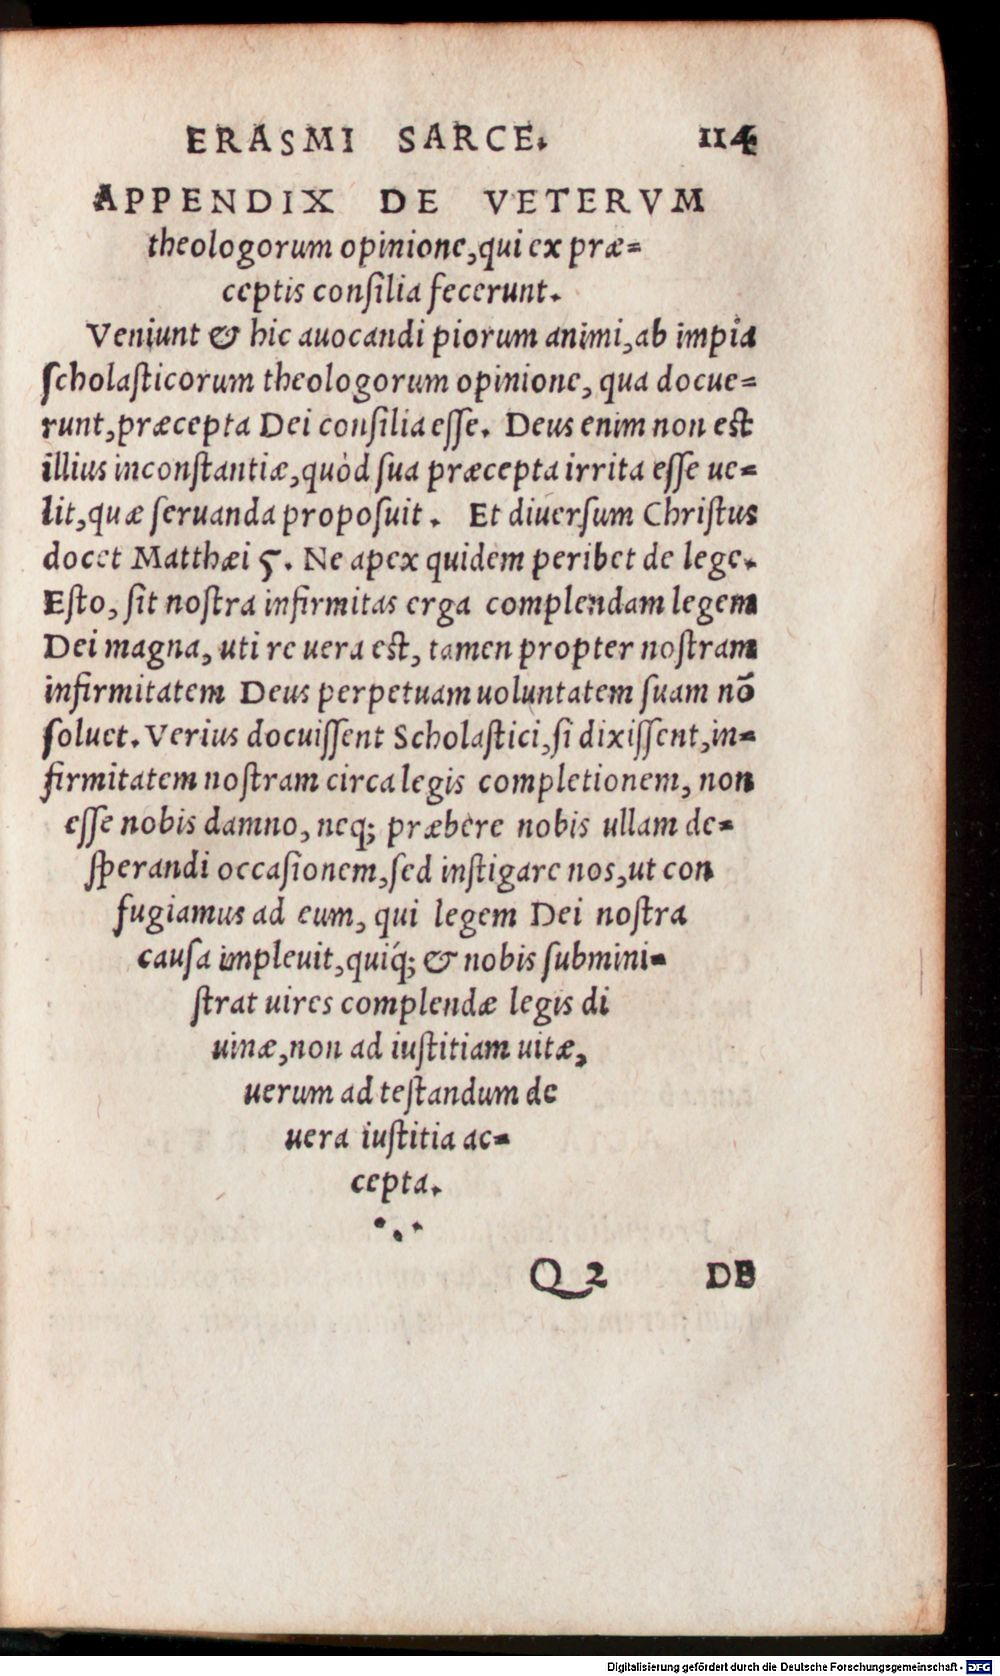 ERASMI SARCE. 114
APPENDIX DE VETERVM
theologorum opinione, qui ex præ=
ceptis consilia fecerunt.
Veniunt & hic auocandi piorum animi, ab impia
scholasticorum theologorum opinione, qua docue=
runt, præcepta Dei consilia esse. Deus enim non est
illius inconstantiæ, quòd sua præcepta irrita esse ue=
lit, quæ seruanda proposuit. Et diuersum Christus
docet Matthæi 5. Ne apex quidem peribet de lege.
Esto, sit nostra infirmitas erga complendam legem
Dei magna, uti re uera est, tamen propter nostram
infirmitatem Deus perpetuam uoluntatem suam nō
soluet. Verius docuissent Scholastici, si dixissent, in=
firmitatem nostram circa legis completionem, non
esse nobis damno, neq; præbere nobis ullam de=
sperandi occasionem, sed instigare nos, ut con
fugiamus ad eum, qui legem Dei nostra
causa impleuit, quíq; & nobis submini=
strat uires complendæ legis di
uinæ, non ad iustitiam uitæ,
uerum ad testandum de
uera iustitia ac=
cepta.
Q 2 DE
Digitalisierung gefördert durch die Deutsche Forschungsgemeinschaft - DFG